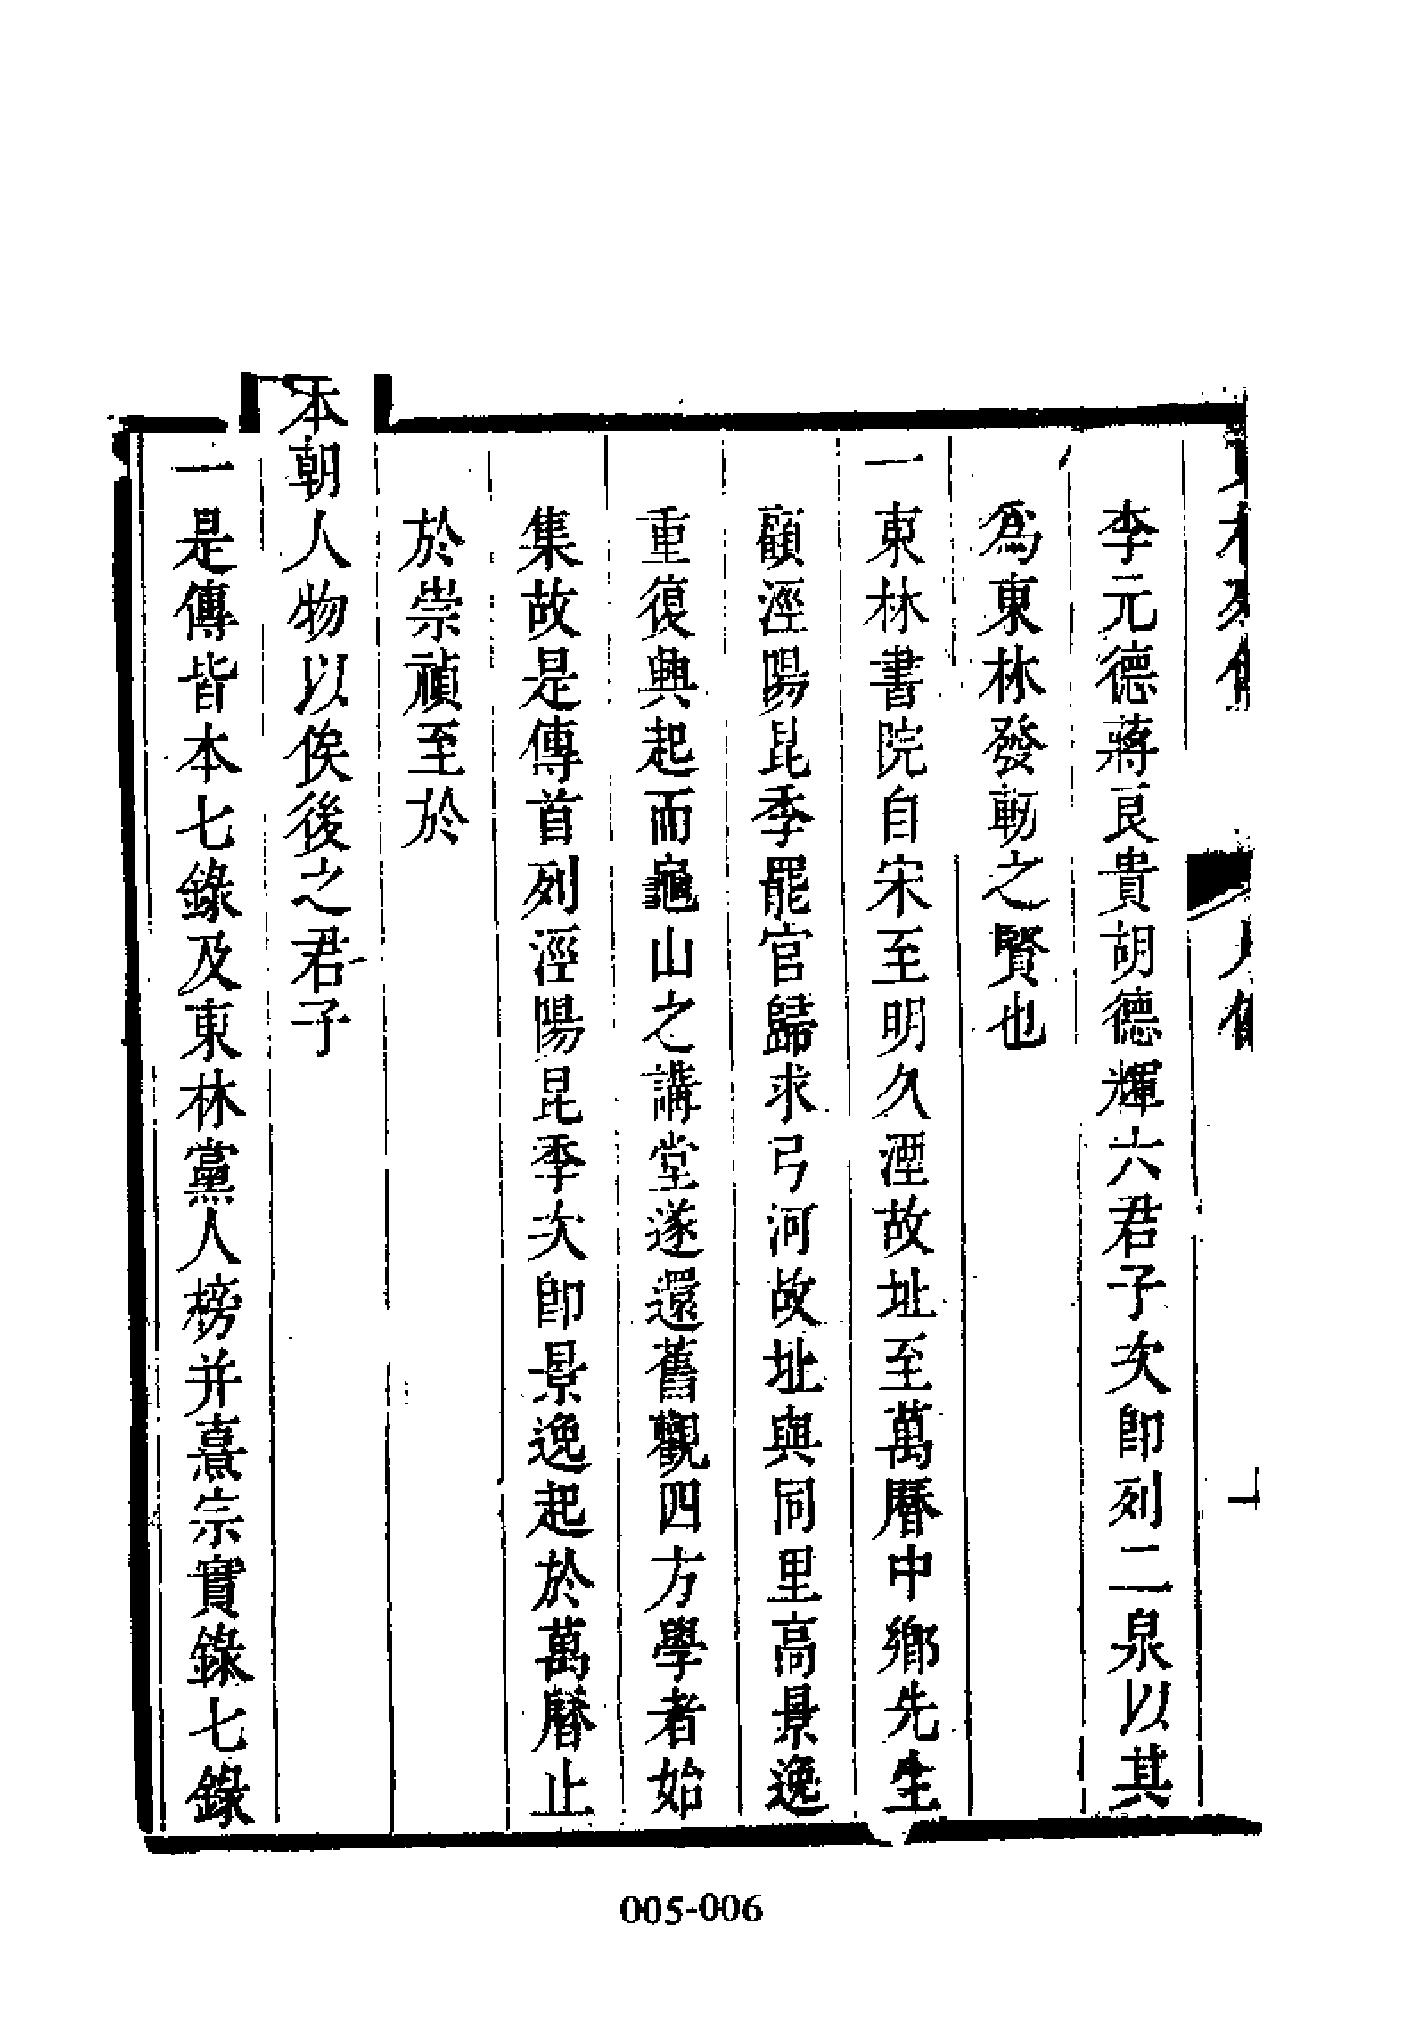 李元德蔣良貴胡德輝六君子次即列二泉以其
為東林發軔之賢也
一東林書院自宋至明久湮故址至萬曆中鄉先生
顧涇陽昆季罷官歸求弓河故址與同里高景逸
重復興起而龜山之講堂遂還舊觀四方學者始
集故是傳首列涇陽昆季次即景逸起於萬曆止
於崇禎至於
本朝人物以俟後之君子
一是傳皆本七錄及東林黨人榜并熹宗實錄七錄
005-006